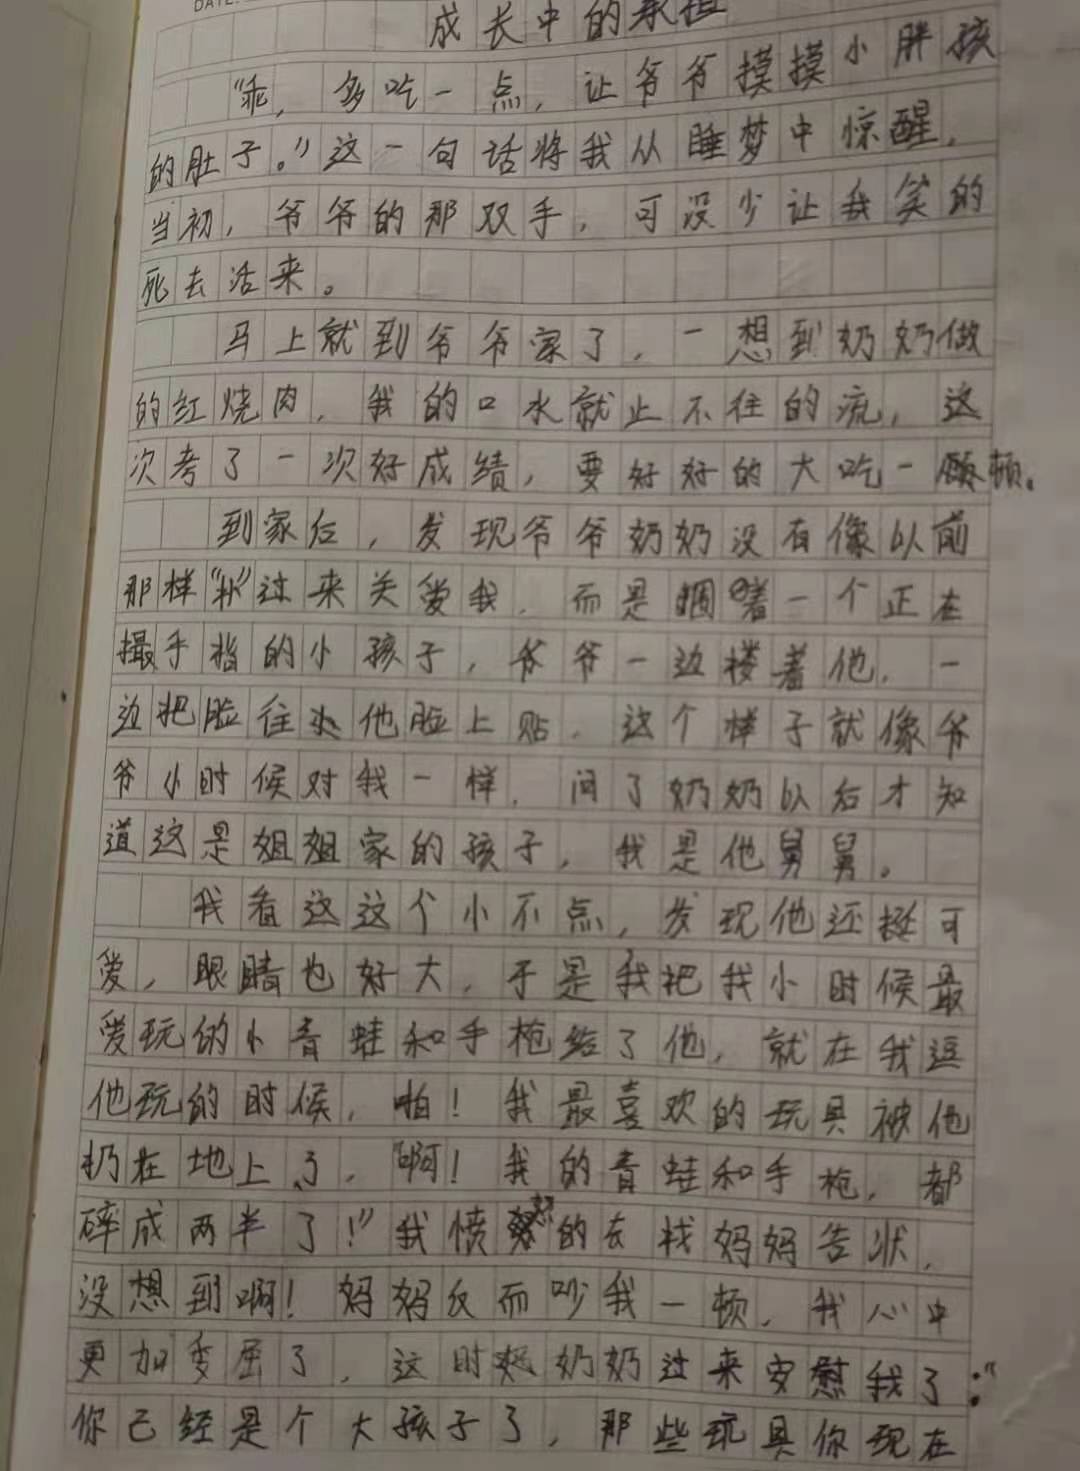 DATE.
成长中的承担
“乖，多吃一点，让爷爷摸摸小胖孩
的肚子。”这一句话将我从睡梦中惊醒，
当初，爷爷的那双手，可没少让我笑的
死去活来。
马上就到爷爷家了，一想到奶奶做
的红烧肉，我的口水就止不住的流，这
次考了一次好成绩，要好好的大吃一顿。
到家后，发现爷爷奶奶没有像以前
那样“扑”过来关爱我，而是围着一个正在
撮手指的小孩子，爷爷一边搂着他，一
边把脸往他脸上贴，这个样子就像爷
爷小时候对我一样，问了奶奶以后才知
道这是姐姐家的孩子，我是他舅舅。
我看这这个小不点，发现他还挺可
爱，眼睛也好大，于是我把我小时候最
爱玩的小青蛙和手枪给了他，就在我逗
他玩的时候，啪！我最喜欢的玩具被他
扔在地上了，“啊！我的青蛙和手枪，都
碎成两半了！”我愤怒的去找妈妈告状，
没想到啊！妈妈反而吵我一顿，我心中
更加委屈了，这时奶奶过来安慰我了：“
你已经是个大孩子了，那些玩具你现在